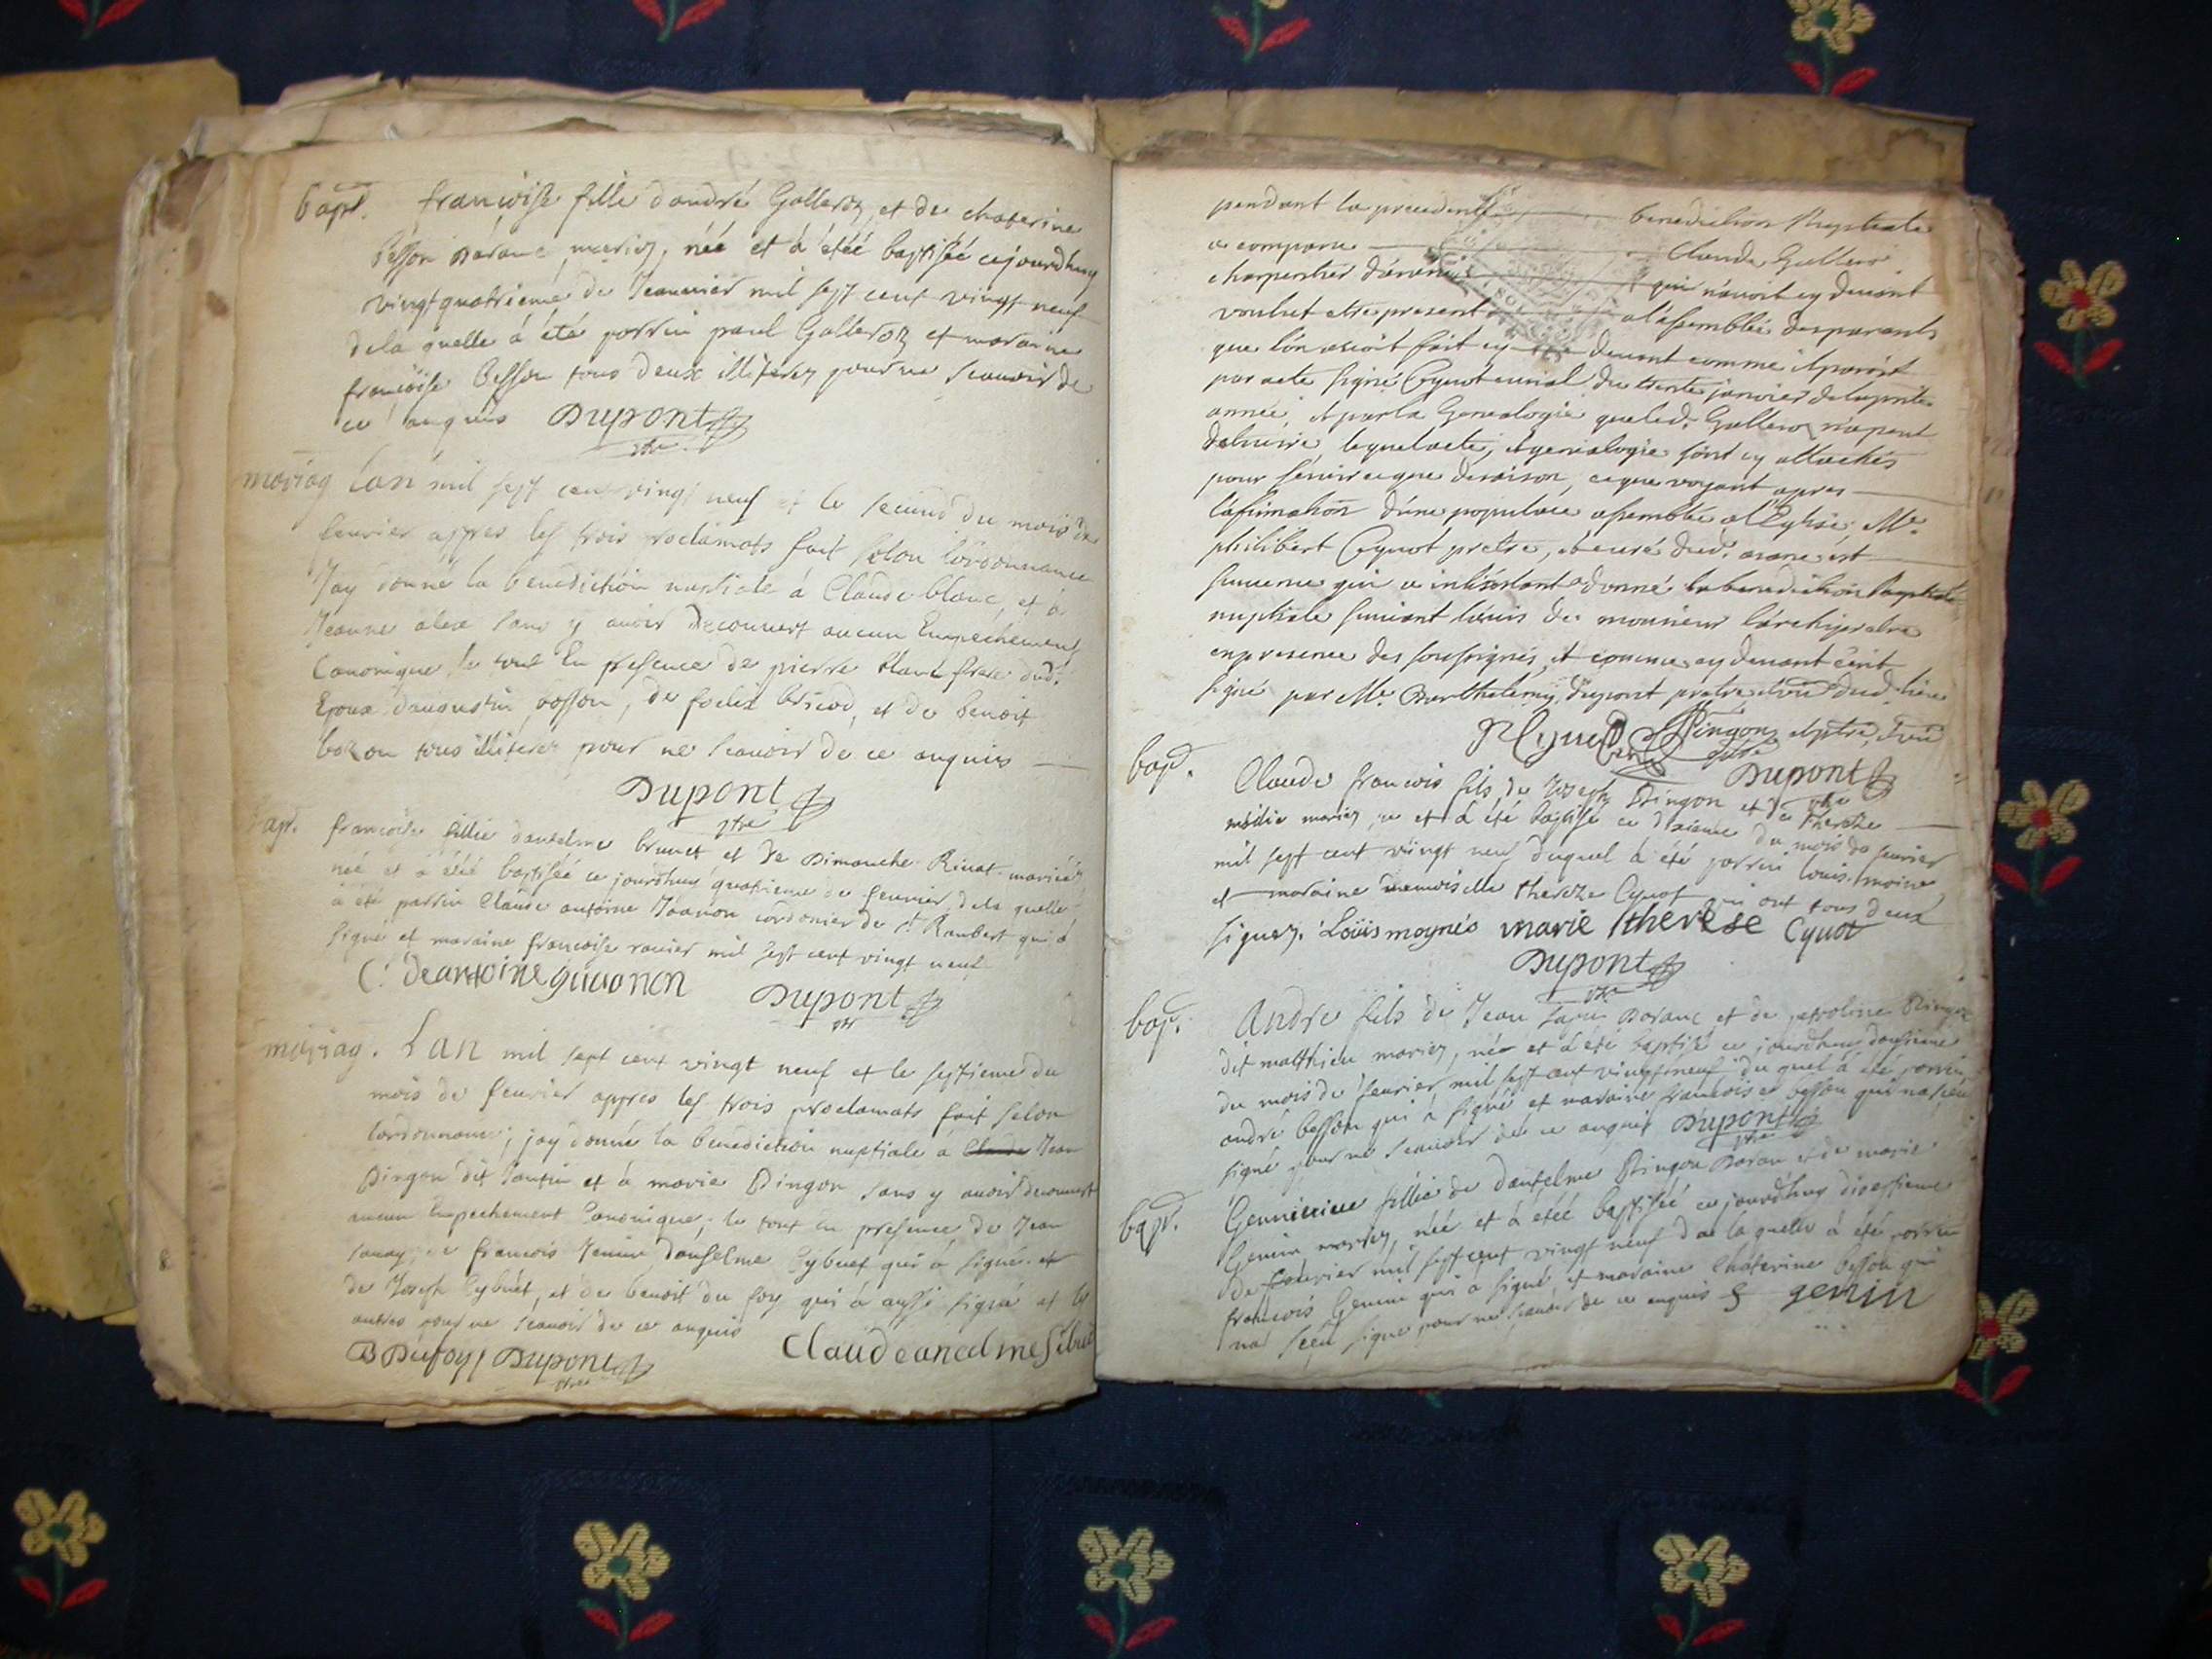 bapt. francoise fille dandré Galleron, et de chaterine
besson Daranc mariez, née et à étéé baptiséé cejourdhuy
vingtquatrieme de Jeanvier mil sept cent vingt neuf
dela quelle à été parrin paul Galleron et maraine
francoise besson tous deux illiterez pour ne scavoir de
ce enquis Dupont
ptre
mariag lan mil sept cent vingt neuf et le second du mois de
feuvrier appres les trois proclamats fait selon lordonnance
Jay donné la benediction nuptiale à Claude blanc, et à
Jeanne alex sans y avoir decouvert aucun Empechement
Canonique le tout En presence de pierre blanc frere dud.
Epoux daugustin bosson, de felix bricod, et de benoit
bozon tous illiterez pour ne scavoir de ce enquis
Dupont
ptre
bapt. francoise fillie dantelme brunet et de Dimanche Rivat mariéz
néé et à étéé baptiséé ce jourdhuy quatrieme de feuvrier, dela quelle
à été parrin Claude antoine Joanon cordonier de St Rambert qui à
signé et maraine francoise ravier mil sept cent vingt neuf
C. deantoine guuonon Dupont
ptr
mariag. Lan mil sept cent vingt neuf et le septieme du
mois de feuvrier appres les trois proclamats fait selon
lordonnance, jay donné la benediction nuptiale à Claude Jean
Pingon dit santin et à marie Pingon sans y avoir decouvert
aucun Empechement Canonique; le tout en presence de Jean
francois Jenin danselme Sybuet qui à signé et
de Joseph Sybuet, et de benoit du foy qui à aussi signé et les
autres pour ne scavoir de ce enquis
B Dufoy Dupont Claudeancelme Sibuet
ptre
pendant la precedente benediction Nuptiale
a comparu Claude Galleron
charpentier daranc qui n'avoit cy devant
voulut estre present a l'assemblée des parants
que l'on avoit fait cy devant comme il paroit
par acte signé Cyvot curial du trente janvier de la pnte
année et par la Genealogie que led. Galleron n'a peut
detruire lequel acte, et genealogie sont cy attachés
pour servir ce que de raison, ce que voyant apres
l'afirmation d'une populace assemblée a l'Eglise Me.
philibert Cyvot pretre, et curé dud. aranc est
survenu qui a donné la benediction Nuptiale
nuptiale suivant l'avis de monsieur l'archipretre
en presence des soussignés, et comme cy devant écrit
signé par Me. Barthelemy Dupont pretre dud. lieu
P Cyvot Pingon
Dupont
bap. Claude francois fils de Joseph Pingon et de Thereze
mariez ne et à été baptisé ce dixieme du mois de feuvrier
mil sept cent vingt neuf duquel à été parrin louis moine
et maraine demoiselle thereze Cyvot qui ont tous deux
signez. Loüis moynés marie therese Cyvot
Dupont
ptre
bap. Andre fils de Jean Daranc et de petroline Pingon
dit matthieu mariez, né et à été baptisé ce jourdhuy dousieme
du mois de feuvrier mil sept cent vingt neuf du quel à été parrin
andré besson qui à signé et maraine francoise besson qui na sceu
signé pour ne scavoir de ce enquis Dupont
ptre
bap. Genevieve fillie de dantelme Pingon Daran et de marie
Genin mariez, néé et à étéé baptiséé ce jourdhuy
de feuvrier mil sept cent vingt neuf de la quelle à été parrin
francois Genin qui à signé et maraine Chaterine besson qui
na sceu signe pour ne scavoir de ce enquis genin